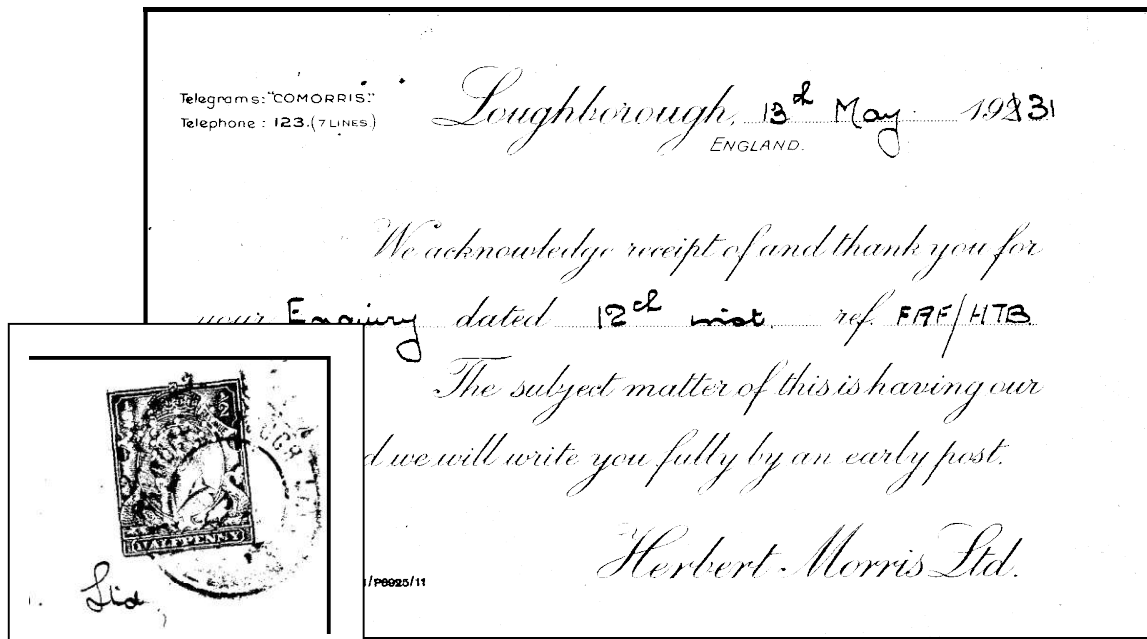 Telegrams: "COMORRIS."
Telephone: 123. (7 LINES.)
Loughborough, 13th May 1931
ENGLAND.
We acknowledge receipt of and thank you for
your Enquiry dated 12th inst. ref. FRF/HTB
The subject matter of this is having our
d we will write you fully by an early post.
Herbert Morris Ltd.
/P6925/11
1/2
HALFPENNY
Ltd.